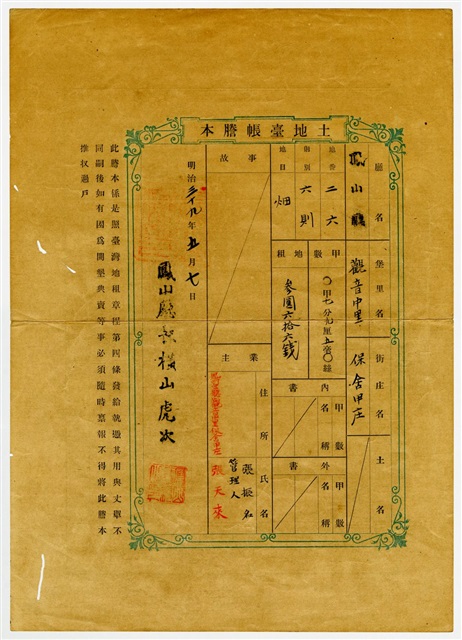 土地臺帳謄本
廳名
鳳山廳
堡里名
觀音中里
街庄名
保舍甲庄
土名
地番
二六
則別
六則
地目
畑
甲數
〇甲七分九厘五毫〇絲
地租
參圓六拾六錢
內書
甲數
名稱
外書
甲數
名稱
事故
業主
住所
氏名
張振名
管理人
張天來
明治三十九年五月七日
鳳山廳
橫山虎次
此謄本係是照臺灣地租章程第四條發給執憑其用與丈單不
同嗣後如有因為開墾典賣等事必須隨時稟報不得將此謄本
推收過戶